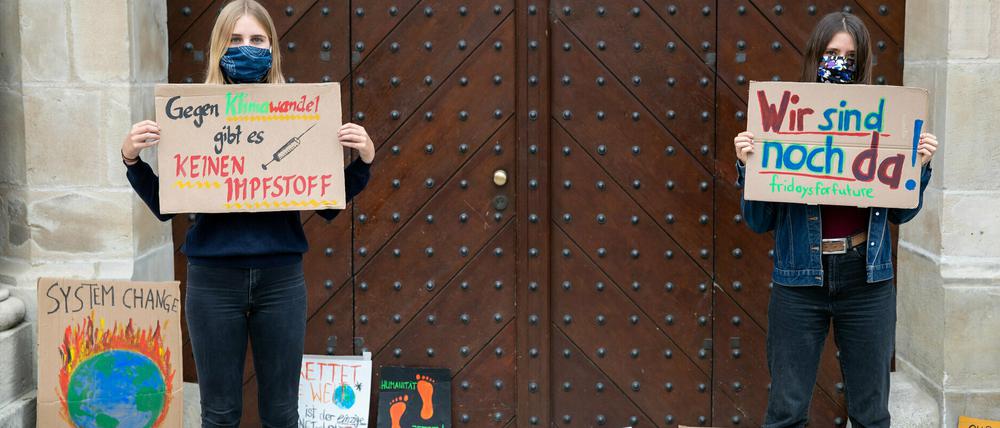 Gegen Klimawandel
gibt es
KEINEN
IMPFSTOFF
Wir sind
noch da!
fridaysforfuture
SYSTEM CHANGE
ETTET
HUMANITÄT
ist der
einzige